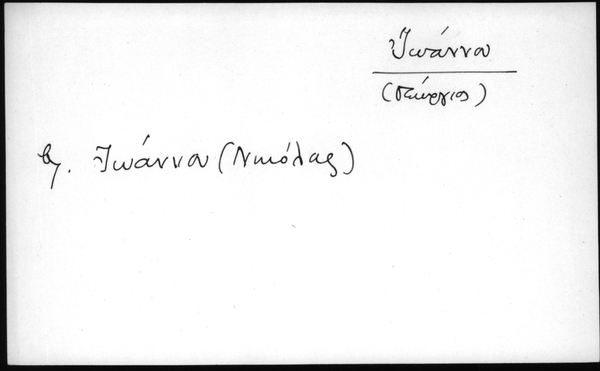 Ἰωάννου
(Γεώργιος)
βλ. Ἰωάννου (Νικόλας)